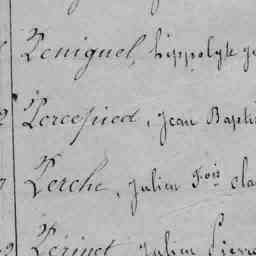 Peniguel, hippolyte
Percepied, Jean Bapti
Perche, Julien Fois cla
Perinet Julien Pierre